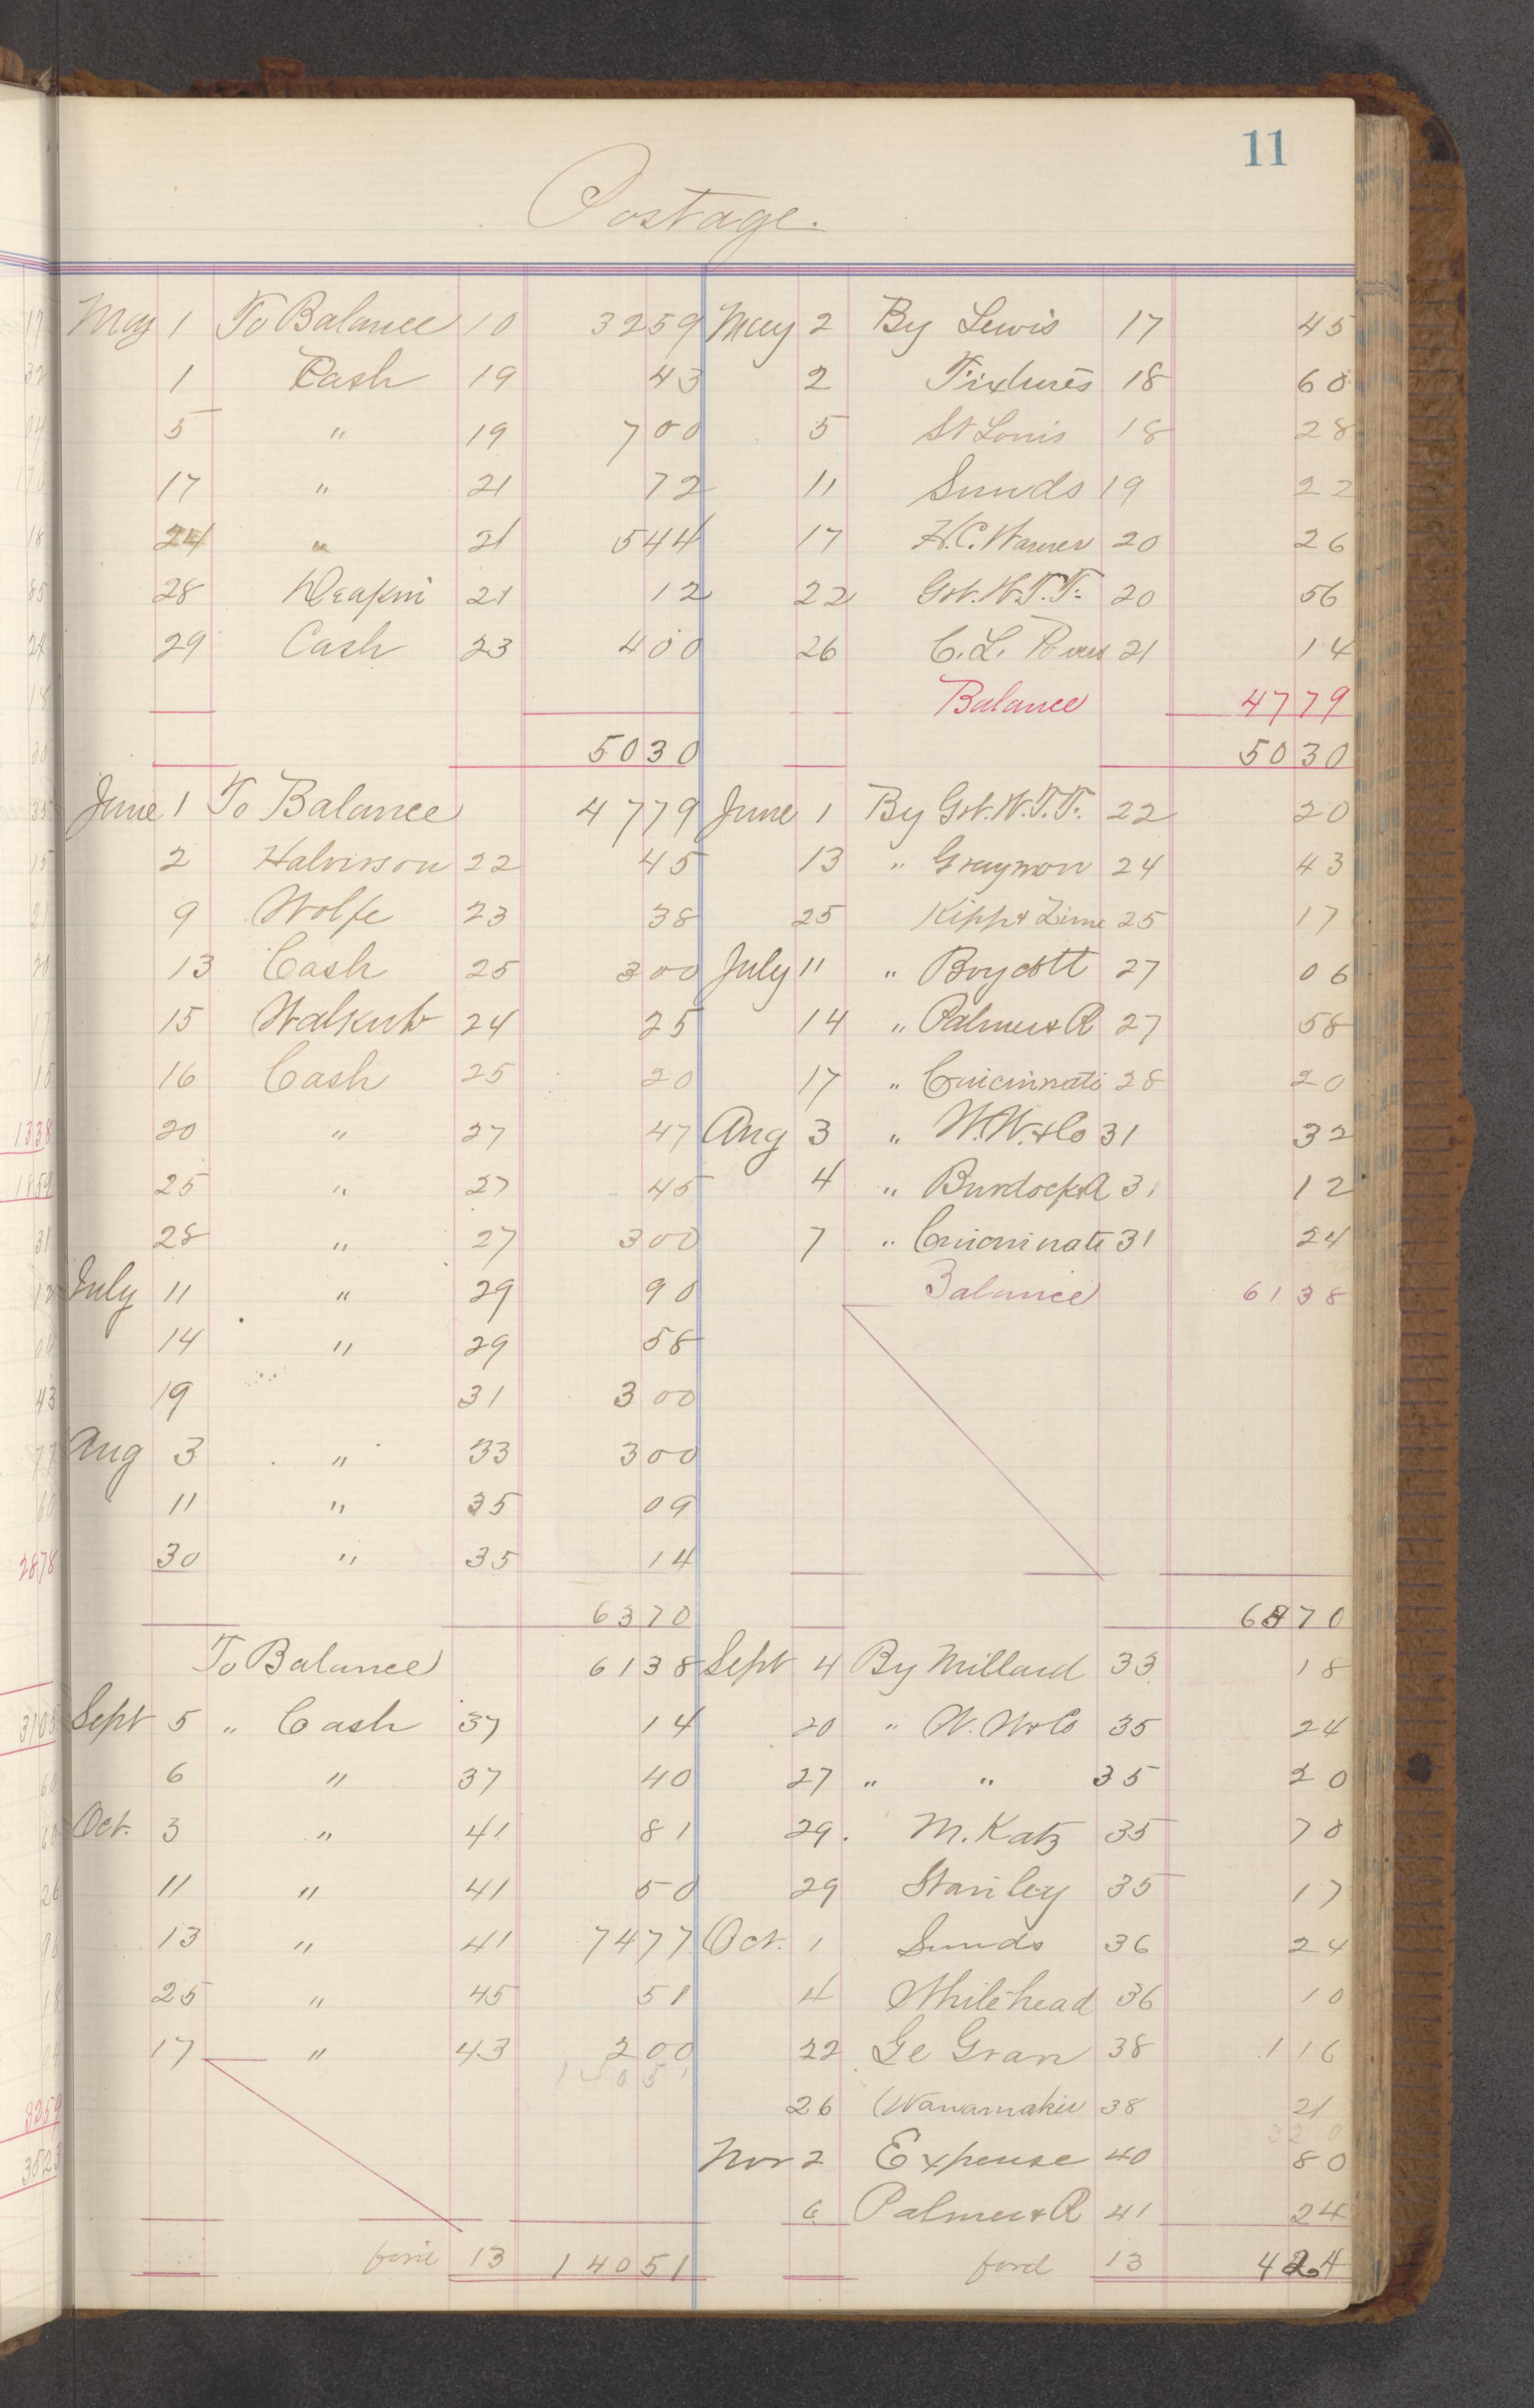 11
Postage.
May 1 To Balance 10 32 59 May 2 By Lewis 17 45
1 Cash 19 43 2 Fixtures 18 60
5 " 19 7 00 5 St Louis 18 28
17 " 21 72 11 Sunds 19 22
24 " 21 5 44 17 H.C. Warner 20 26
28 21 12 22 Gt. N.T.T. 20 56
29 Cash 23 4 00 26 C.L. 21 14
Balance 47 79
50 30 50 30
June 1 To Balance 47 79 June 1 By Gt. N.T.T. 22 20
2 Halvirson 22 45 13 " Graymon 24 43
9 Wolfe 23 38 25 Kipp & Zime 25 17
13 Cash 25 3 00 July 11 " Boycott 27 06
15 24 25 14 " Palmer & R 27 58
16 Cash 25 20 17 " Cincinnati 28 20
20 " 27 47 Aug 3 " W.W. & Co 31 32
25 " 27 45 4 " Burdock & A 31 12
28 " 27 3 00 7 " Cincinnati 31 24
July 11 " 29 90 Balance 61 38
14 " 29 58
19 31 3 00
Aug 3 " 33 3 00
11 " 35 09
30 " 35 14
63 70 63 70
To Balance 61 38 Sept 4 By Millard 33 18
Sept 5 " Cash 37 14 20 " W. W & Co 35 24
6 " 37 40 27 " " 35 20
Oct. 3 " 41 81 29. M. Katz 35 70
11 " 41 50 29 Stanley 35 17
13 " 41 74 77 Oct. 1 Sunds 36 24
25 " 45 51 4 Whitehead 36 10
17 " 43 2 00 22 Le Gran 38 1 16
140 51
26 Wanamaker 38 21
Nov 2 Expense 40 80
6 Palmer & R 41 24
ford 13 140 51 ford 13 4 24